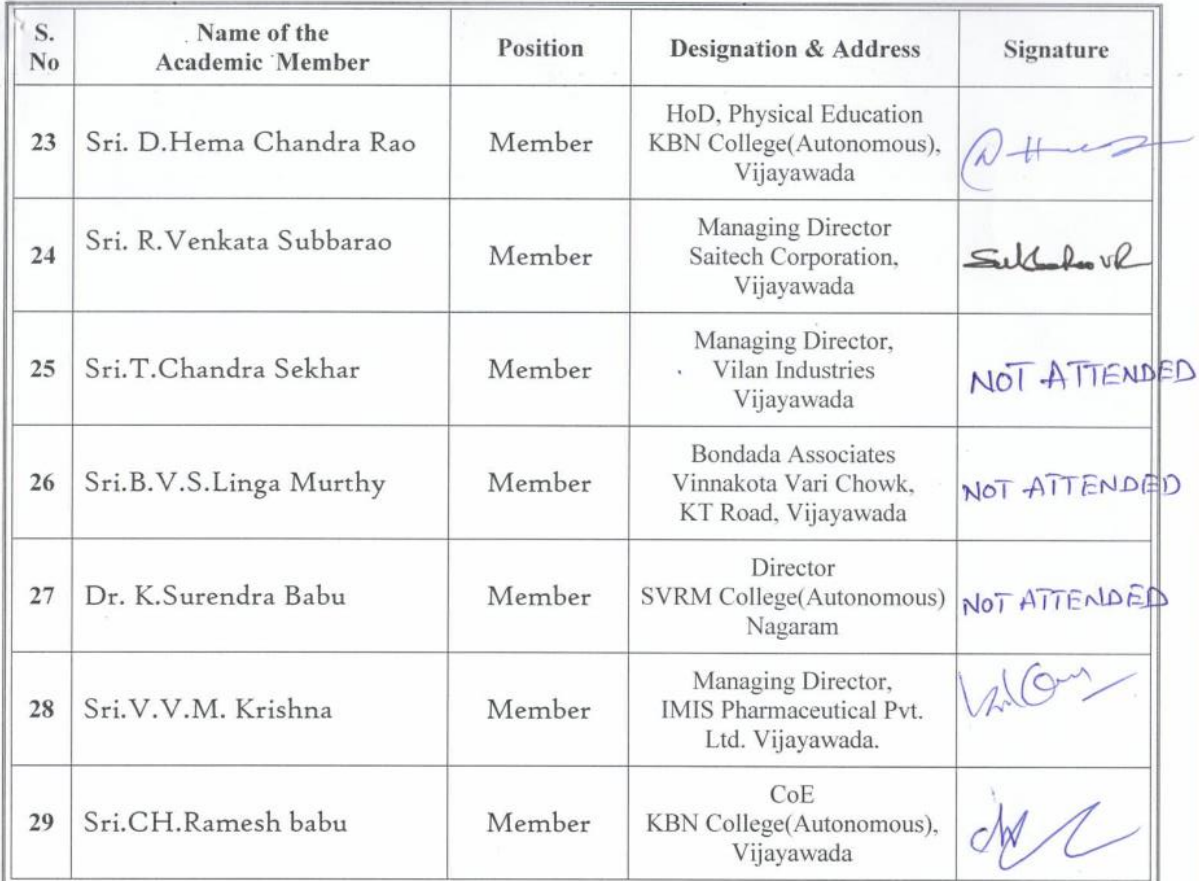 S.
No
Name of the
Academic Member
Position
Designation & Address
Signature
23
Sri. D.Hema Chandra Rao
Member
HoD, Physical Education
KBN College(Autonomous),
Vijayawada
24
Sri. R.Venkata Subbarao
Member
Managing Director
Saitech Corporation,
Vijayawada
Subbarao VR
25
Sri.T.Chandra Sekhar
Member
Managing Director,
Vilan Industries
Vijayawada
NOT ATTENDED
26
Sri.B.V.S.Linga Murthy
Member
Bondada Associates
Vinnakota Vari Chowk,
KT Road, Vijayawada
NOT ATTENDED
27
Dr. K.Surendra Babu
Member
Director
SVRM College(Autonomous)
Nagaram
NOT ATTENDED
28
Sri.V.V.M. Krishna
Member
Managing Director,
IMIS Pharmaceutical Pvt.
Ltd. Vijayawada.
29
Sri.CH.Ramesh babu
Member
CoE
KBN College(Autonomous),
Vijayawada